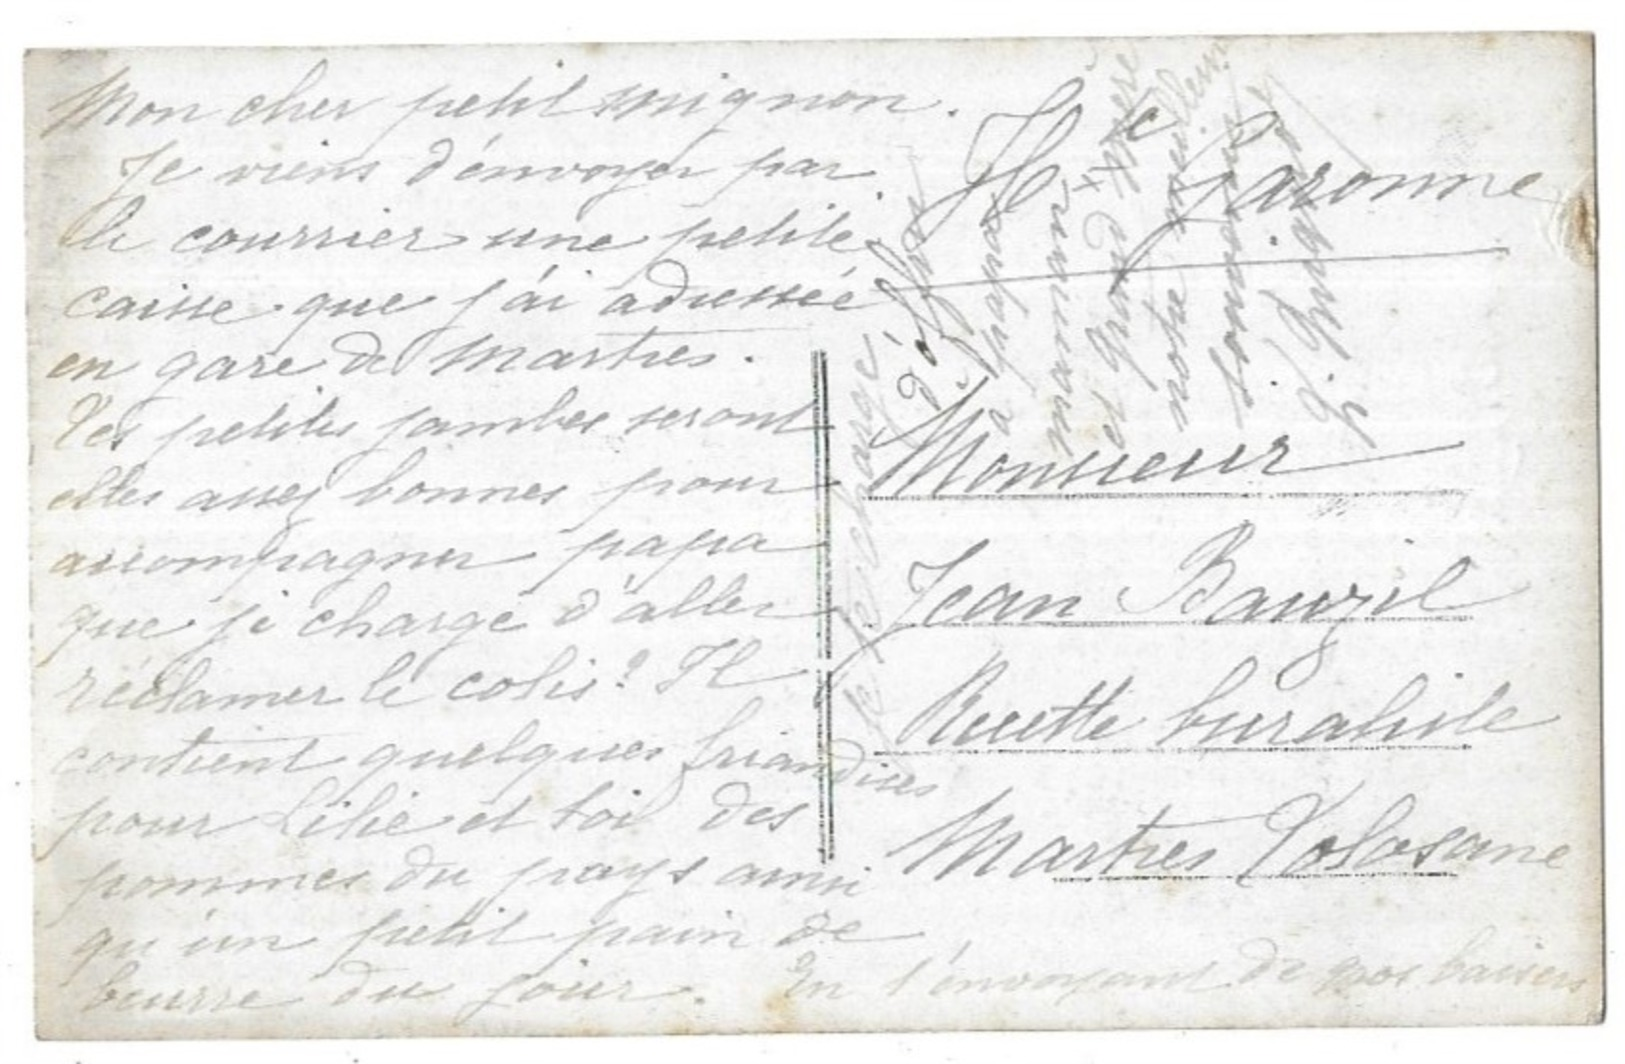 Mon cher petit mignon.
Je viens d'envoyer par
le courrier une petite
caisse que j'ai adressée
en gare de Martres.
Tes petites jambes seront
elles assez bonnes pour
accompagner papa
que je charge d'aller
réclamer le colis? Il
contient quelques friandises
pour Lilie et toi des
pommes du pays ainsi
qu'un petit pain de
beurre du jour. En t'envoyant de gros baisers
je te charge
d'offrir
à papa
maman
et grand mère
notre meilleur
souvenir
Hte Garonne
Monsieur
Jean Bauzil
Recette buraliste
Martres Tolosane